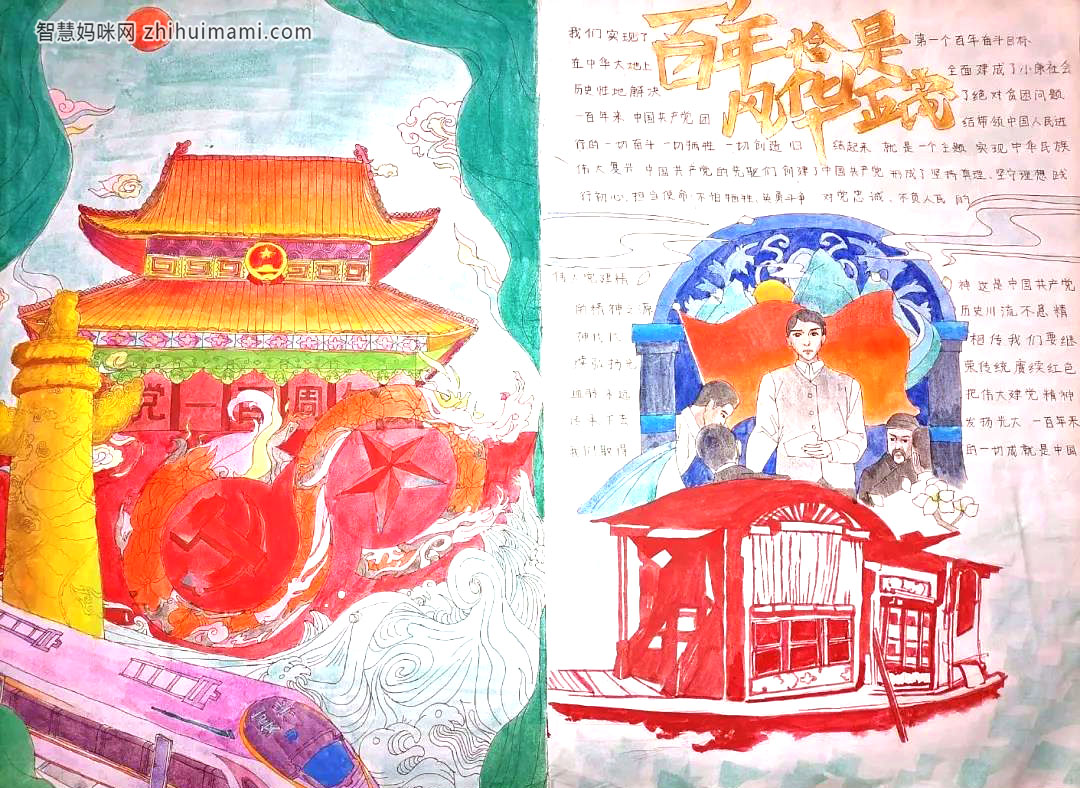 智慧妈咪网 zhihuimami.com
党一百周
百年恰是
风华正茂
我们实现了 第一个百年奋斗目标
在中华大地上 全面建成了小康社会
历史性地解决 了绝对贫困问题
一百年来 中国共产党 团 结带领中国人民进
行的一切奋斗 一切牺牲 一切创造 归 结起来 就是一个主题 实现中华民族
伟大复兴 中国共产党的先驱们创建了中国共产党 形成了坚持真理、坚守理想 践
行初心、担当使命、不怕牺牲、英勇斗争 对党忠诚、不负人民 的
伟大建党精 神 这是中国共产党
的精神之源 历史川流不息 精
神代代 相传 我们要继
续弘扬光 荣传统 赓续红色
血脉 永远 把伟大建党精神
发扬光大 一百年来
我们取得 的一切成就 是中国